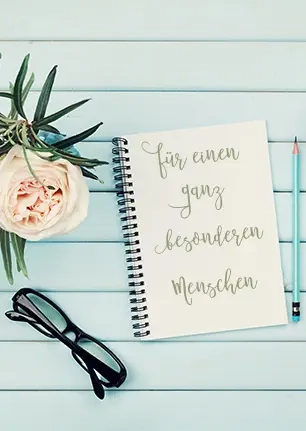 für einen
ganz
besonderen
Menschen